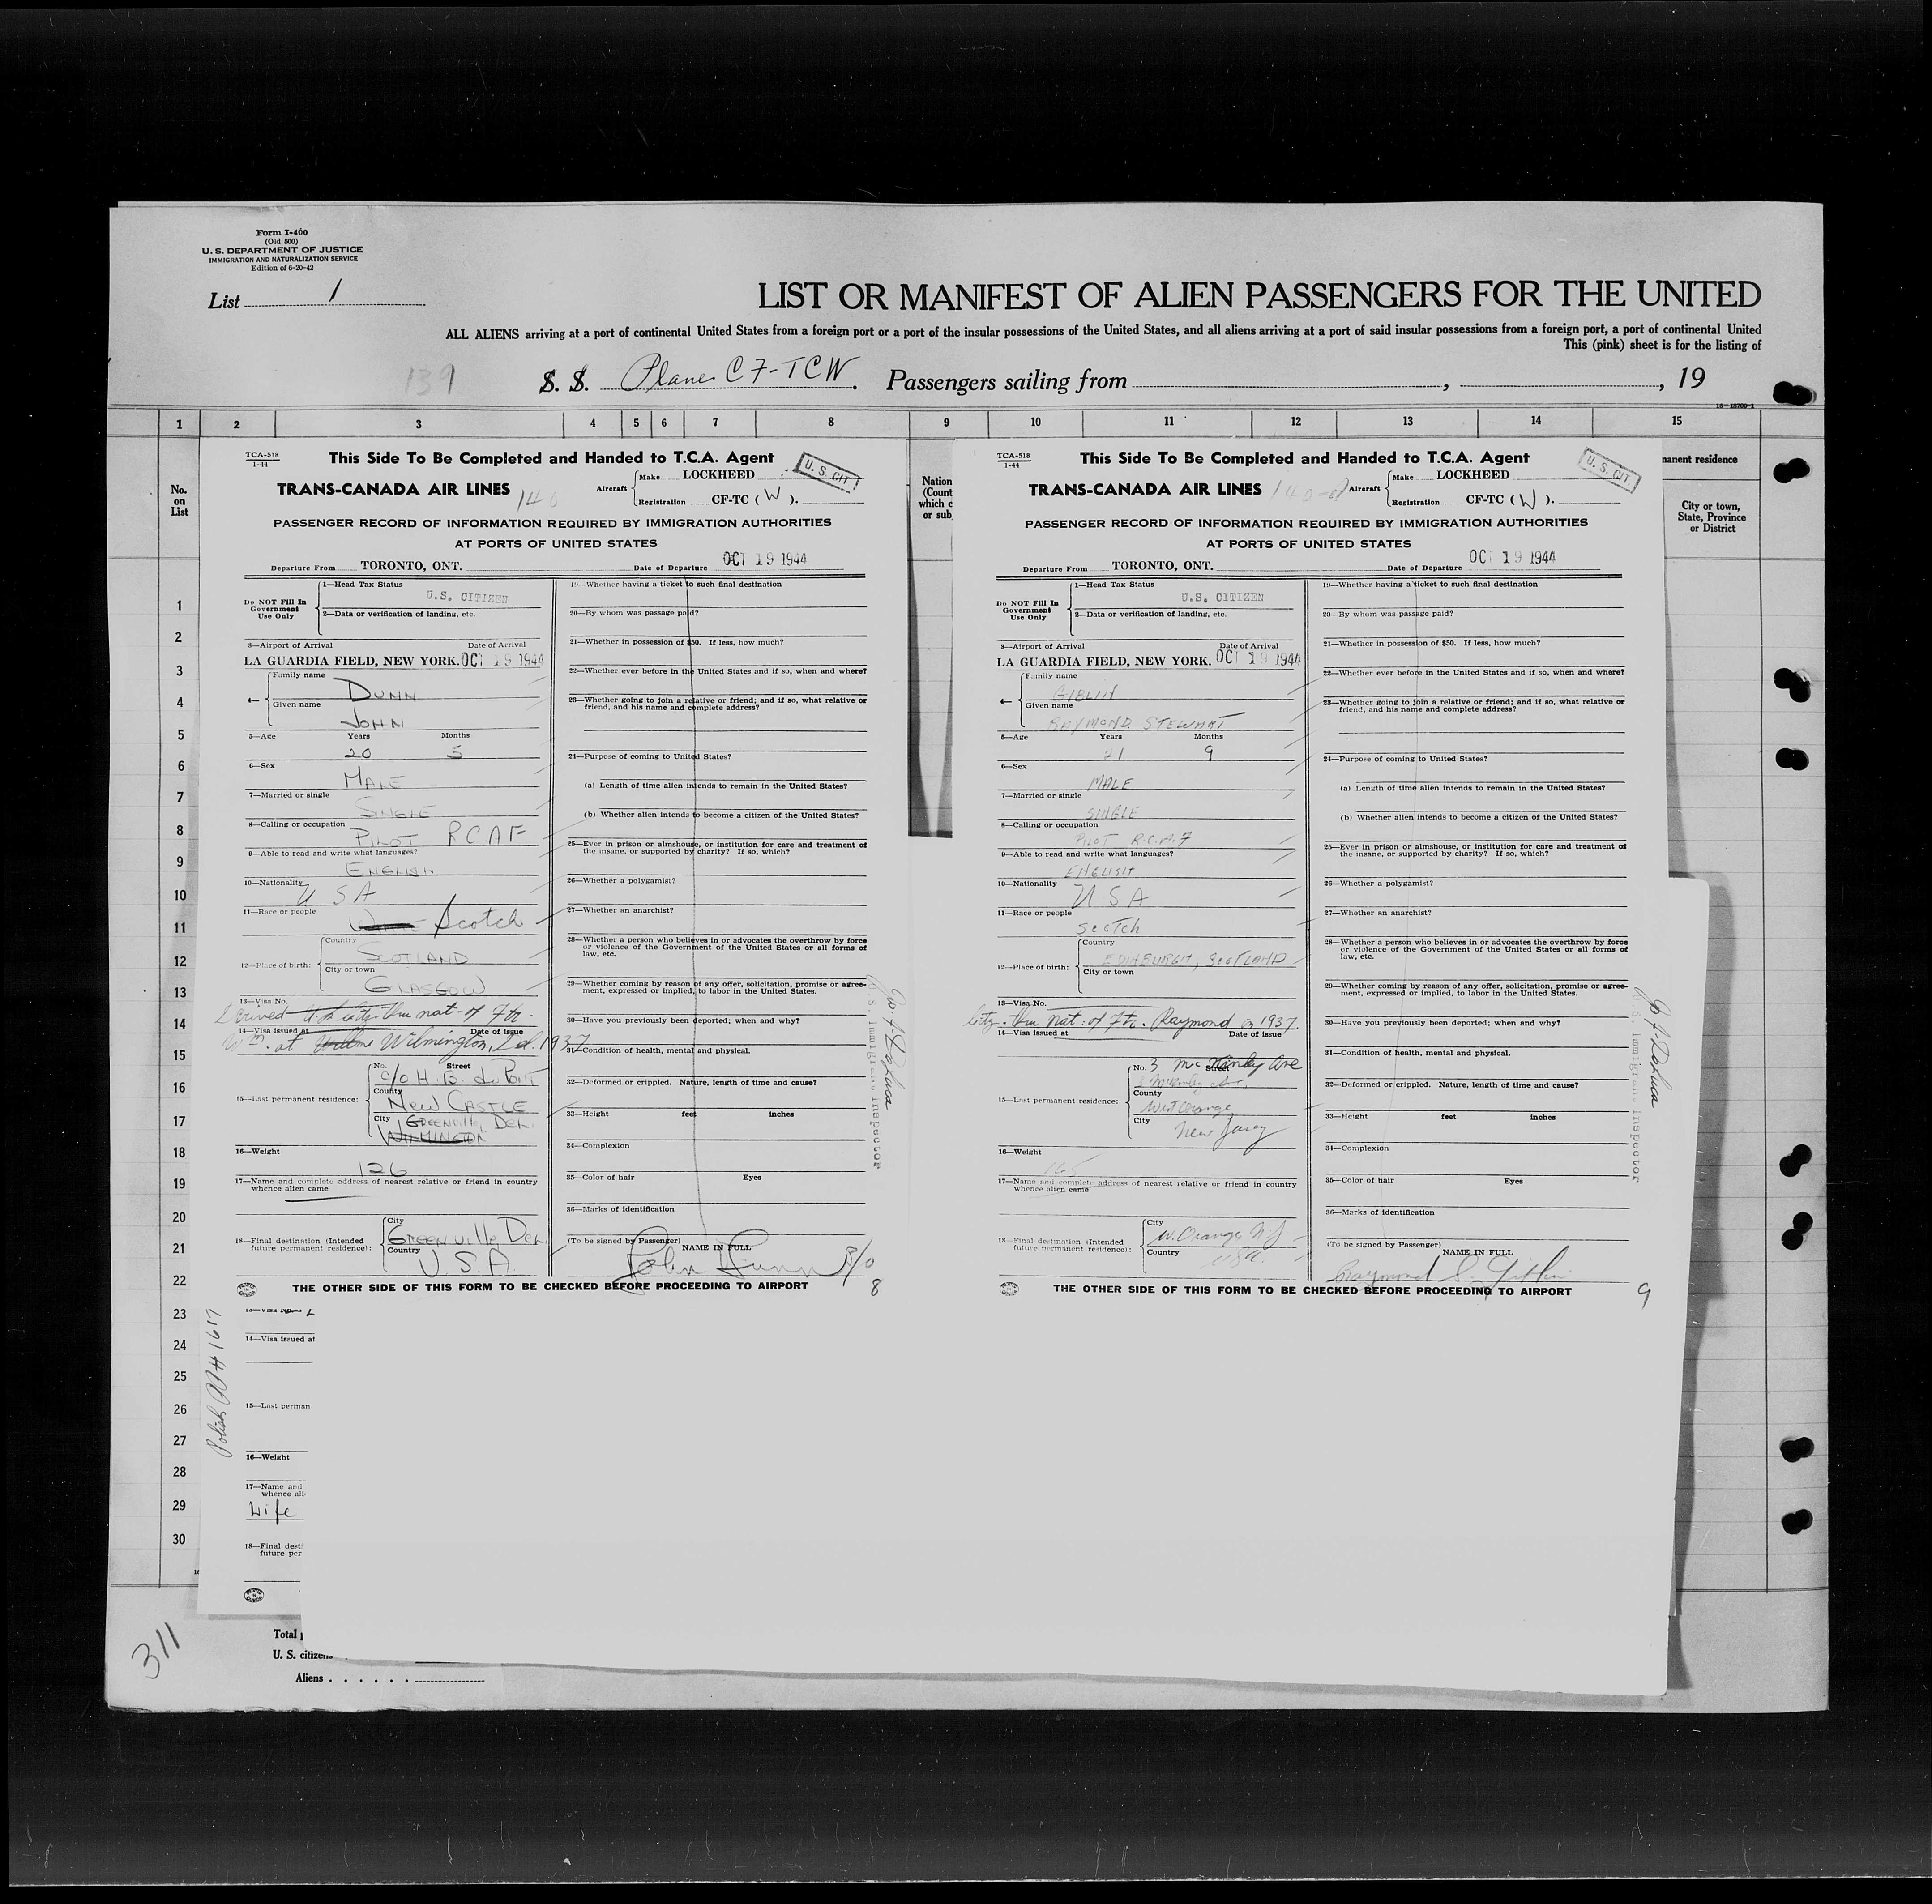 Form I-400
(Old 500)
U. S. DEPARTMENT OF JUSTICE
IMMIGRATION AND NATURALIZATION SERVICE
Edition of 6-20-42
List 1
LIST OR MANIFEST OF ALIEN PASSENGERS FOR THE UNITED
ALL ALIENS arriving at a port of continental United States from a foreign port or a port of the insular possessions of the United States, and all aliens arriving at a port of said insular possessions from a foreign port, a port of continental United
This (pink) sheet is for the listing of
139
S. S. Plane CF-TCW. Passengers sailing from , , 19
16—18709-1
1 2 3 4 5 6 7 8 9 10 11 12 13 14 15
No. on List
TCA-518
1-44
This Side To Be Completed and Handed to T.C.A. Agent
U. S. CIT.
TRANS-CANADA AIR LINES 140
Aircraft Make LOCKHEED
Registration CF-TC ( W ).
PASSENGER RECORD OF INFORMATION REQUIRED BY IMMIGRATION AUTHORITIES
AT PORTS OF UNITED STATES
Departure From TORONTO, ONT. Date of Departure OCT 19 1944
Do NOT Fill In Government Use Only
1—Head Tax Status
U.S. CITIZEN
2—Data or verification of landing, etc.
3—Airport of Arrival Date of Arrival
LA GUARDIA FIELD, NEW YORK. OCT 19 1944
4— Family name
DUNN
Given name
JOHN
5—Age Years Months
20 5
6—Sex
MALE
7—Married or single
SINGLE
8—Calling or occupation
PILOT RCAF
9—Able to read and write what languages?
ENGLISH
10—Nationality
U S A
11—Race or people
Scotch
12—Place of birth: Country
SCOTLAND
City or town
GLASGOW
13—Visa No.
Derived U.S. citz. thru nat. of Fth.
14—Visa issued at Date of issue
Wm. at Wilmington, Del. 1937
15—Last permanent residence: No. Street
c/o H. B. du Pont
County
NEW CASTLE
City GREENVILLE, DEL.
WILMINGTON
16—Weight
126
17—Name and complete address of nearest relative or friend in country
whence alien came
18—Final destination (Intended
future permanent residence):
City
GREENVILLE DEL.
Country
U.S.A.
19—Whether having a ticket to such final destination
20—By whom was passage paid?
21—Whether in possession of $50. If less, how much?
22—Whether ever before in the United States and if so, when and where?
23—Whether going to join a relative or friend; and if so, what relative or
friend, and his name and complete address?
24—Purpose of coming to United States?
(a) Length of time alien intends to remain in the United States?
(b) Whether alien intends to become a citizen of the United States?
25—Ever in prison or almshouse, or institution for care and treatment of
the insane, or supported by charity? If so, which?
26—Whether a polygamist?
27—Whether an anarchist?
28—Whether a person who believes in or advocates the overthrow by force
or violence of the Government of the United States or all forms of
law, etc.
29—Whether coming by reason of any offer, solicitation, promise or agree-
ment, expressed or implied, to labor in the United States.
30—Have you previously been deported; when and why?
31—Condition of health, mental and physical.
32—Deformed or crippled. Nature, length of time and cause?
33—Height feet inches
34—Complexion
35—Color of hair Eyes
36—Marks of identification
(To be signed by Passenger)
NAME IN FULL
John Dunn P/O
THE OTHER SIDE OF THIS FORM TO BE CHECKED BEFORE PROCEEDING TO AIRPORT
8
U.S. Immigrant Inspector
Nation
(Count
which c
or sub
TCA-518
1-44
This Side To Be Completed and Handed to T.C.A. Agent
U. S. CIT.
TRANS-CANADA AIR LINES
Aircraft Make LOCKHEED
Registration CF-TC ( W ).
PASSENGER RECORD OF INFORMATION REQUIRED BY IMMIGRATION AUTHORITIES
AT PORTS OF UNITED STATES
Departure From TORONTO, ONT. Date of Departure OCT 19 1944
Do NOT Fill In Government Use Only
1—Head Tax Status
U.S. CITIZEN
2—Data or verification of landing, etc.
3—Airport of Arrival Date of Arrival
LA GUARDIA FIELD, NEW YORK. OCT 19 1944
4— Family name
GIBLIN
Given name
RAYMOND STEWART
5—Age Years Months
21 9
6—Sex
MALE
7—Married or single
SINGLE
8—Calling or occupation
PILOT R.C.A.F
9—Able to read and write what languages?
ENGLISH
10—Nationality
U S A
11—Race or people
Scotch
12—Place of birth: Country
EDINBURGH, SCOTLAND
City or town
13—Visa No.
Citz. thru nat. of Fth. Raymond in 1937.
14—Visa issued at Date of issue
15—Last permanent residence: No. 3 McKinley Ave
Street
McKinley Ave.
County
West Orange
City
New Jersey
16—Weight
165
17—Name and complete address of nearest relative or friend in country
whence alien came
18—Final destination (Intended
future permanent residence):
City
W. Orange N J
Country
USA.
19—Whether having a ticket to such final destination
20—By whom was passage paid?
21—Whether in possession of $50. If less, how much?
22—Whether ever before in the United States and if so, when and where?
23—Whether going to join a relative or friend; and if so, what relative or
friend, and his name and complete address?
24—Purpose of coming to United States?
(a) Length of time alien intends to remain in the United States?
(b) Whether alien intends to become a citizen of the United States?
25—Ever in prison or almshouse, or institution for care and treatment of
the insane, or supported by charity? If so, which?
26—Whether a polygamist?
27—Whether an anarchist?
28—Whether a person who believes in or advocates the overthrow by force
or violence of the Government of the United States or all forms of
law, etc.
29—Whether coming by reason of any offer, solicitation, promise or agree-
ment, expressed or implied, to labor in the United States.
30—Have you previously been deported; when and why?
31—Condition of health, mental and physical.
32—Deformed or crippled. Nature, length of time and cause?
33—Height feet inches
34—Complexion
35—Color of hair Eyes
36—Marks of identification
(To be signed by Passenger)
NAME IN FULL
Raymond S. Giblin
THE OTHER SIDE OF THIS FORM TO BE CHECKED BEFORE PROCEEDING TO AIRPORT
9
U.S. Immigrant Inspector
manent residence
City or town,
State, Province
or District
1
2
3
4
5
6
7
8
9
10
11
12
13
14
15
16
17
18
19
20
21
22
23
24
25
26
27
28
29
30
14—Visa issued at
15—Last perman
16—Weight
17—Name and
whence ali
Wife
18—Final dest
future per
311
Total
U. S. citizens
Aliens